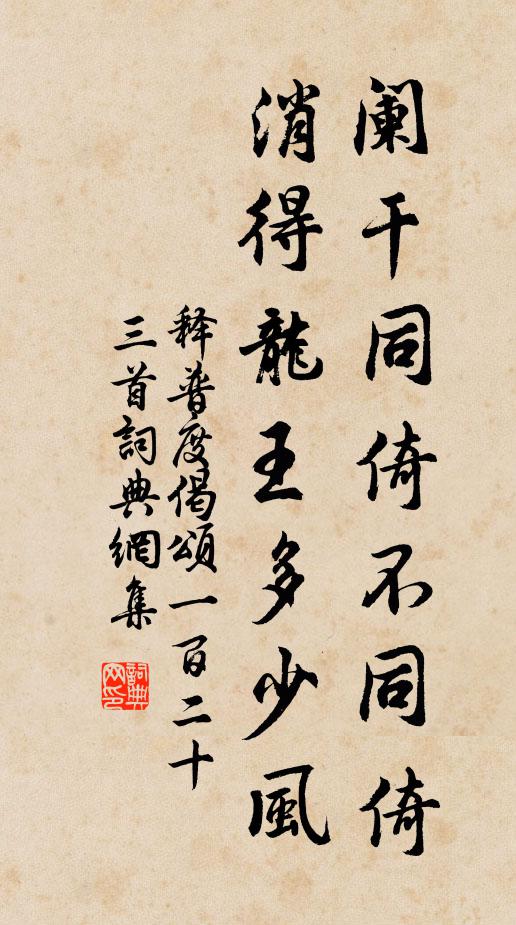 阑干同倚不同倚
消得龍王多少風
释普度偈頌一百二十
三首詞典網集
詞典网印